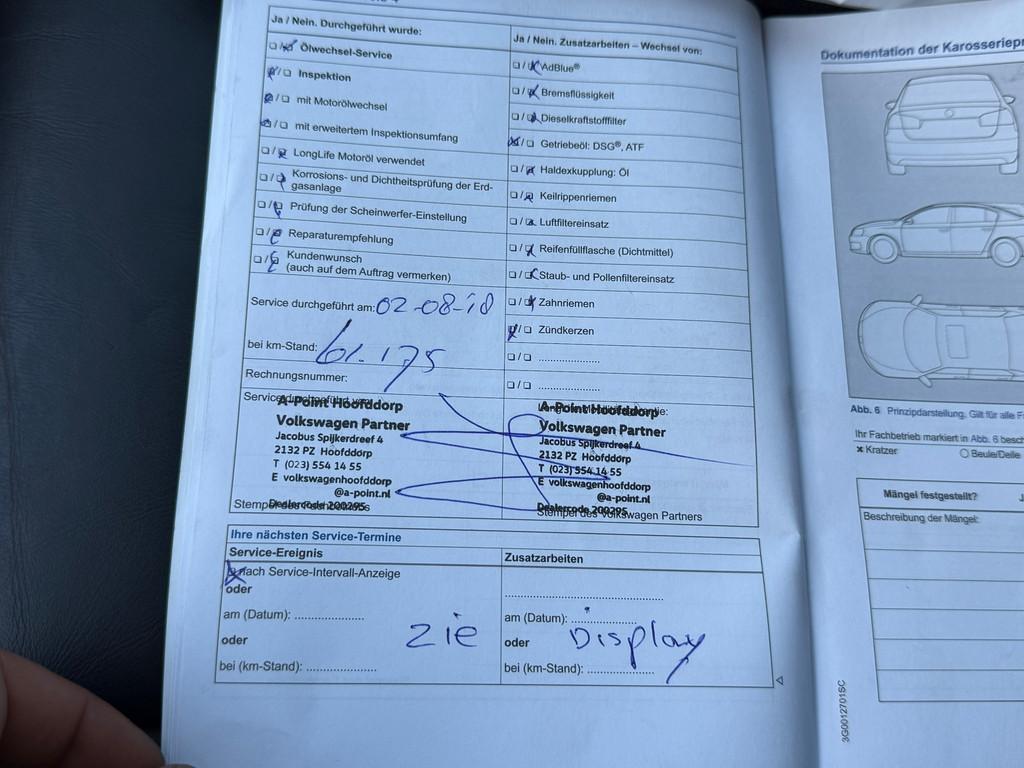 Ja / Nein. Durchgeführt wurde:
☐ / ☒ Ölwechsel-Service
☒ / ☐ Inspektion
☒ / ☐ mit Motorölwechsel
☒ / ☐ mit erweitertem Inspektionsumfang
☐ / ☒ LongLife Motoröl verwendet
☐ / ☒ Korrosions- und Dichtheitsprüfung der Erd-
gasanlage
☐ / ☒ Prüfung der Scheinwerfer-Einstellung
☐ / ☒ Reparaturempfehlung
☐ / ☒ Kundenwunsch
(auch auf dem Auftrag vermerken)
Service durchgeführt am: 02-08-18
bei km-Stand: 61.175
Rechnungsnummer:
A-Point Hoofddorp
Volkswagen Partner
Jacobus Spijkerdreef 4
2132 PZ Hoofddorp
T (023) 554 14 55
E volkswagenhoofddorp
@a-point.nl
Dealercode 200295
Ja / Nein. Zusatzarbeiten – Wechsel von:
☐ / ☒ AdBlue®
☐ / ☒ Bremsflüssigkeit
☐ / ☒ Dieselkraftstofffilter
☒ / ☐ Getriebeöl: DSG®, ATF
☐ / ☒ Haldexkupplung: Öl
☐ / ☒ Keilrippenriemen
☐ / ☒ Luftfiltereinsatz
☐ / ☒ Reifenfüllflasche (Dichtmittel)
☐ / ☒ Staub- und Pollenfiltereinsatz
☐ / ☒ Zahnriemen
☒ / ☐ Zündkerzen
☐ / ☐ .....................
☐ / ☐ .....................
A-Point Hoofddorp
Volkswagen Partner
Jacobus Spijkerdreef 4
2132 PZ Hoofddorp
T (023) 554 14 55
E volkswagenhoofddorp
@a-point.nl
Dealercode 200295
Stempel des Volkswagen Partners
Ihre nächsten Service-Termine
Service-Ereignis
☒ nach Service-Intervall-Anzeige
oder
am (Datum): ..................
oder
bei (km-Stand): ..................
zie Display
Zusatzarbeiten
am (Datum): ..................
oder
bei (km-Stand): ..................
Dokumentation der
Abb. 6 Prinzipdarstellung. Gilt für alle
Ihr Fachbetrieb markiert in Abb. 6
× Kratzer
○ Beule/Delle
Mängel festgestellt?
Beschreibung der Mängel:
3G0012701SC